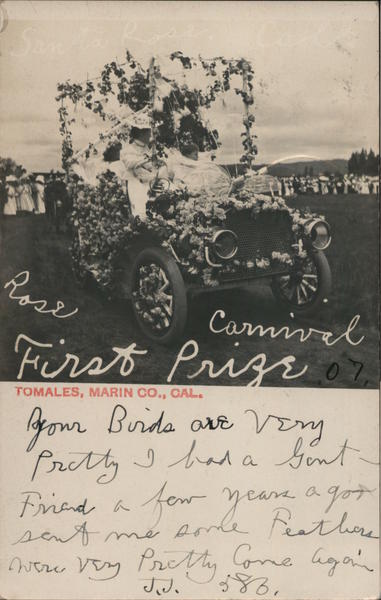 Santa Rosa Calif
Rose
Carnival
First Prize 07,
TOMALES, MARIN CO., CAL.
Your Birds are Very
Pretty I had a Gent-
Friend a few years agoo
sent me some Feathers
were Very Pretty Come Again
J.J. 586.